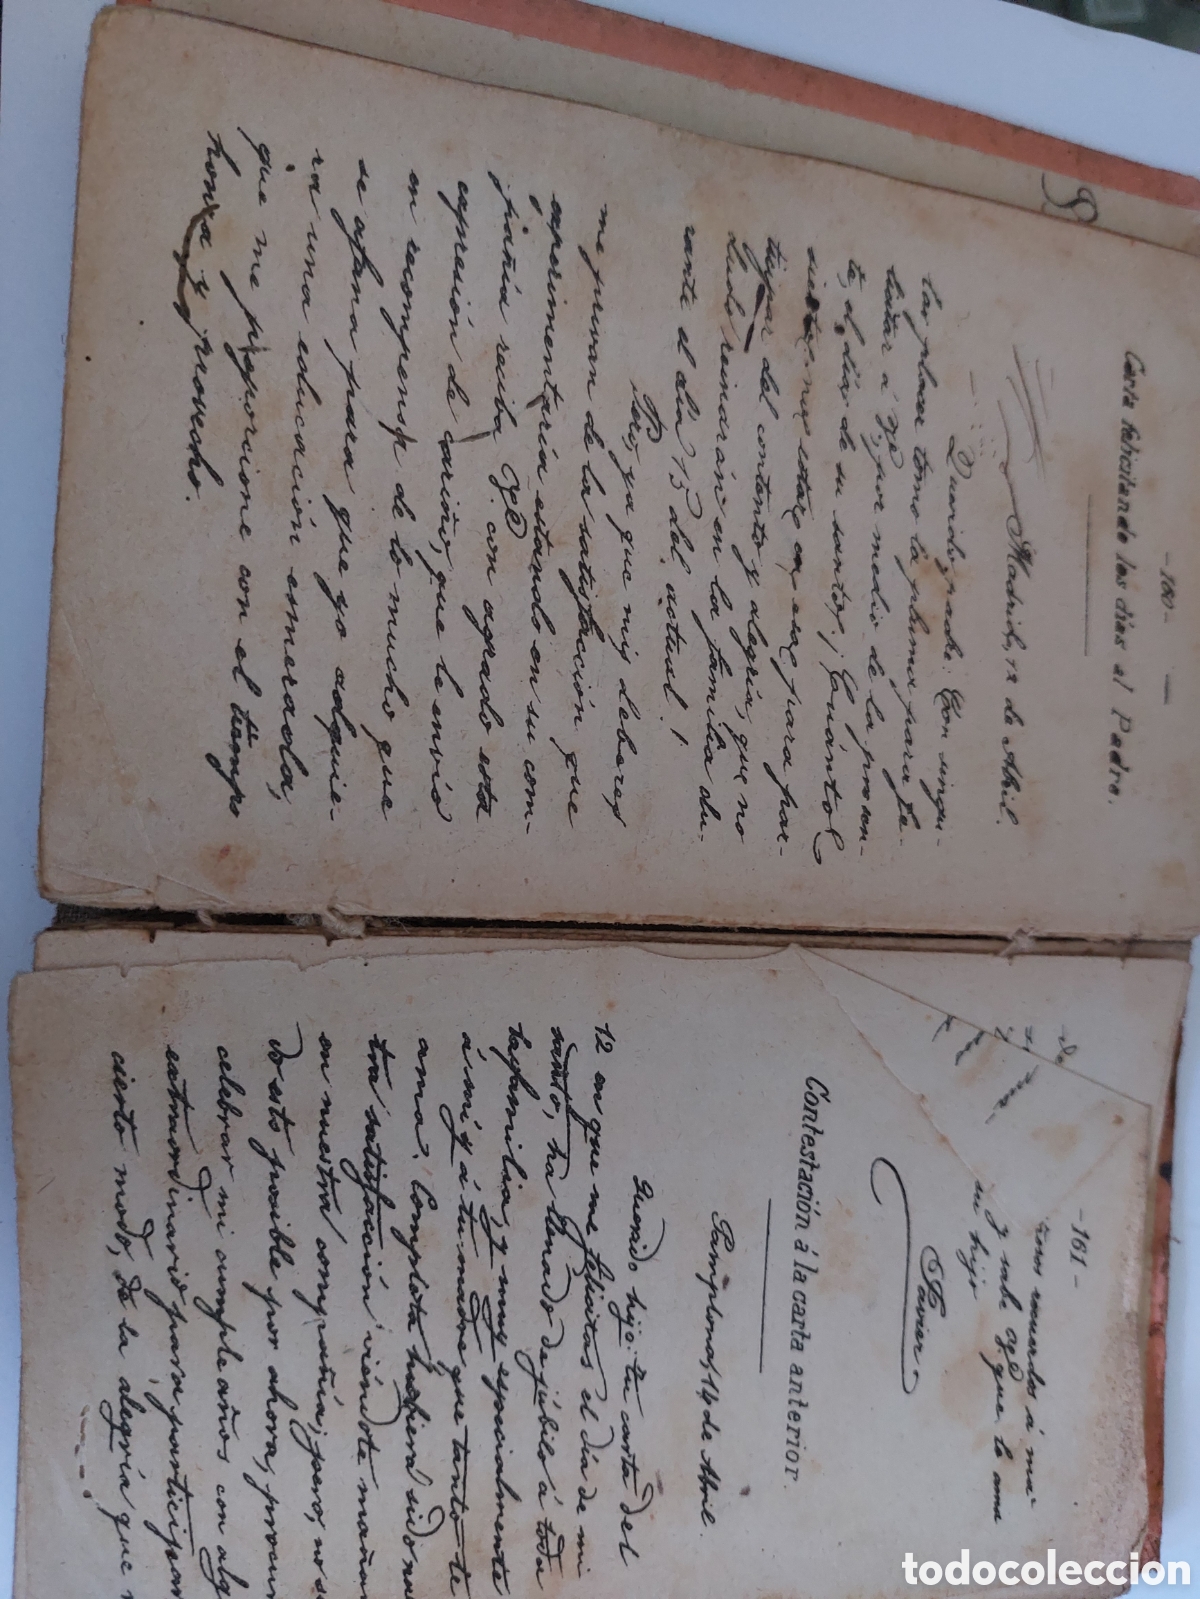 - 160 -
Carta felicitando los días al Padre.
Madrid, 12 de Abril.
Querido padre: Con singu-
lar placer tomo la pluma para fe-
licitar á Vd., por medio de la presen-
te, el día de su santo; ¡Cuánto
siento no estar en esa para par-
ticipar del contento y alegría, que no
dudo reinarán en la familia du-
rante el día 15 del actual!
Pero, ya que mis deberes
me privan de la satisfacción que
experimentaría estando en su com-
pañía reciba Vd. con agrado esta
expresión de cariño, que le envío
en recompensa de lo mucho que
se afana para que yo adquie-
ra una educación esmerada,
que me proporcione con el tiempo
honra y provecho.
- 161 -
recuerdos á ma-
y sabe Vd. que le ama
su hijo
Javier
Contestación á la carta anterior.
Pamplona, 14 de Abril.
Querido hijo: tu carta del
12 en que me felicitas el día de mi
santo, ha llenado de júbilo á toda
la familia, y muy especialmente
á mí y á tu madre que tanto te
ama. Completa hubiera sido nues
tra satisfacción viéndote
en nuestra compañía; pero, no
do esto posible por ahora,
celebrar mi cumpleaños con
extraordinario para participar
cierto modo, de la alegría que
todocoleccion